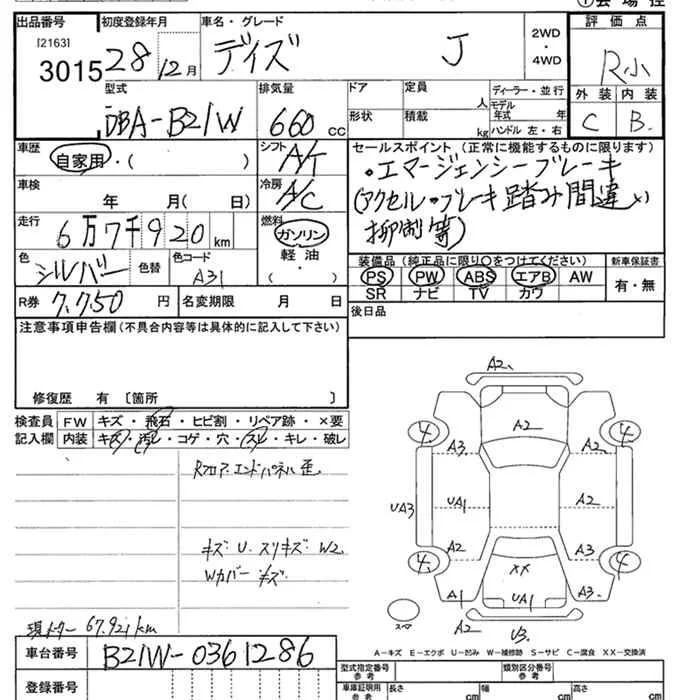 ①会場控
出品番号 [2163] 3015
初度登録年月 28 12月
車名・グレード デイズ J
2WD・4WD
評価点 R小
外装 内装
C B
型式 DBA-B21W
排気量 660 cc
ドア 形状
定員 人 積載 kg
ディーラー・並行
モデル年式 年式
ハンドル 左・右
車歴 自家用・( )
シフト A/T
車検 年 月( 日)
冷房 A/C
走行 6万7千920 km
燃料 ガソリン・軽油・( )
色 シルバー 色替 色コード A31
R券 7,750 円 名変期限 月 日
セールスポイント(正常に機能するものに限ります)
・エマージェンシーブレーキ
(アクセル・ブレーキ踏み間違い
抑制等)
装備品(純正品に限り○をつけてください) 新車保証書
PS PW ABS エアB AW 有・無
SR ナビ TV カワ
後日品
注意事項申告欄(不具合内容等は具体的に記入して下さい)
修復歴 有 〔箇所 〕
検査員記入欄
FW キズ・飛石・ヒビ割・リペア跡・×要
内装 キズ・汚レ・コゲ・穴・スレ・キレ・破レ
Rフロア.エンドパネル歪.
キズ U. スリキズ W2.
Wカバー キズ
現メーター 67.921km
車台番号 B21W-0361286
登録番号
A2.
4. A2 4.
A3. A2
UA3 UA1 A2
A2 A3
4. XX 4.
A1 UA1 A3.
スペア A2 U3.
A-キズ E-エクボ U-凹み W-補修跡 S-サビ C-腐食 XX-交換済
型式指定番号 参考 類別区分番号 参考
車庫証明用 参考 長さ cm 幅 cm 高さ cm